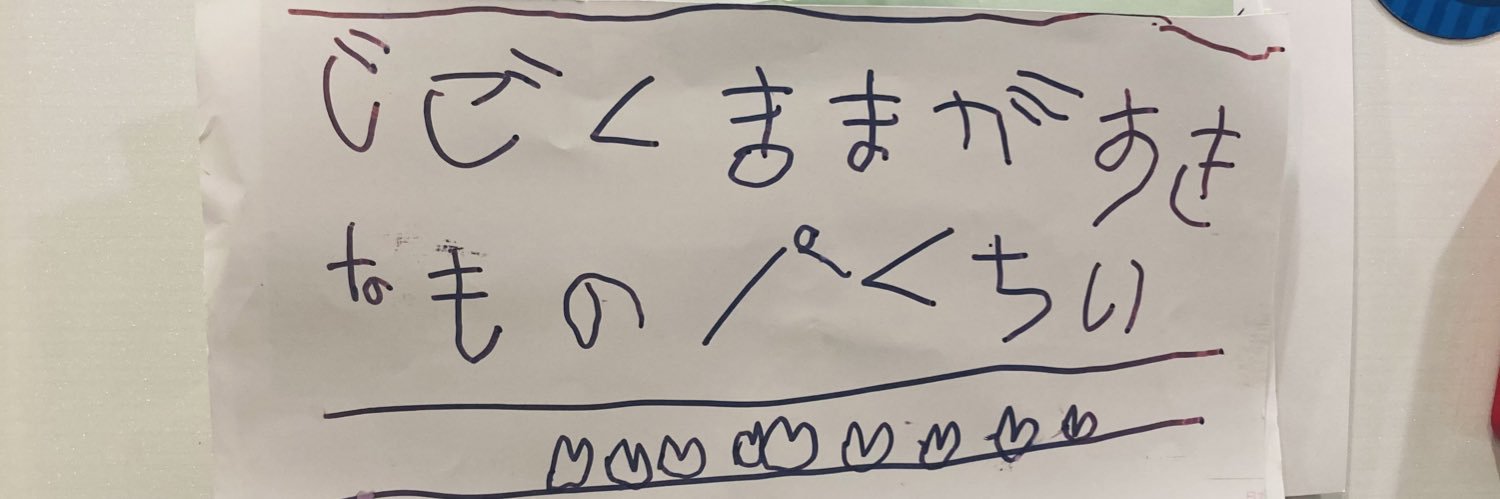 じごくままがすき
なものぺくちい